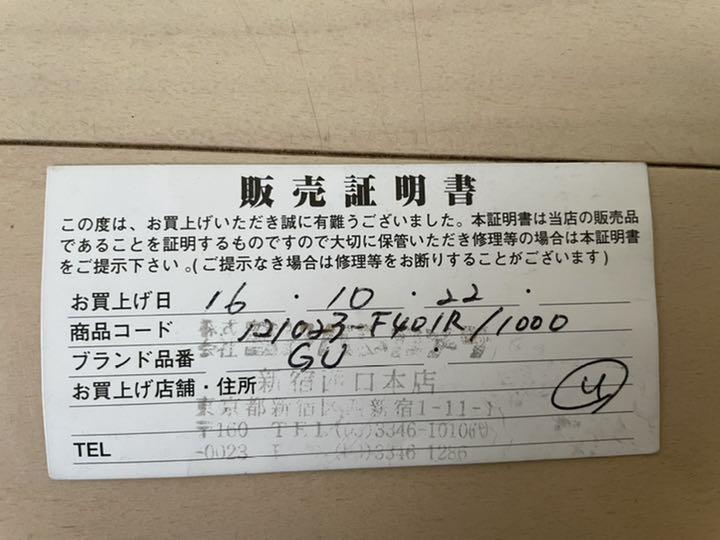 販売証明書
この度は、お買上げいただき誠に有難うございました。本証明書は当店の販売品
であることを証明するものですので大切に保管いただき修理等の場合は本証明書
をご提示下さい。(ご提示なき場合は修理等をお断りすることがございます)
お買上げ日 16.10.22.
商品コード 121023-F401R/1000
ブランド品番 GU
お買上げ店舗・住所 新宿西口本店
東京都新宿区西新宿1-11-1
〒160 TEL(03)3346-1010
-0023 3346-1286
TEL